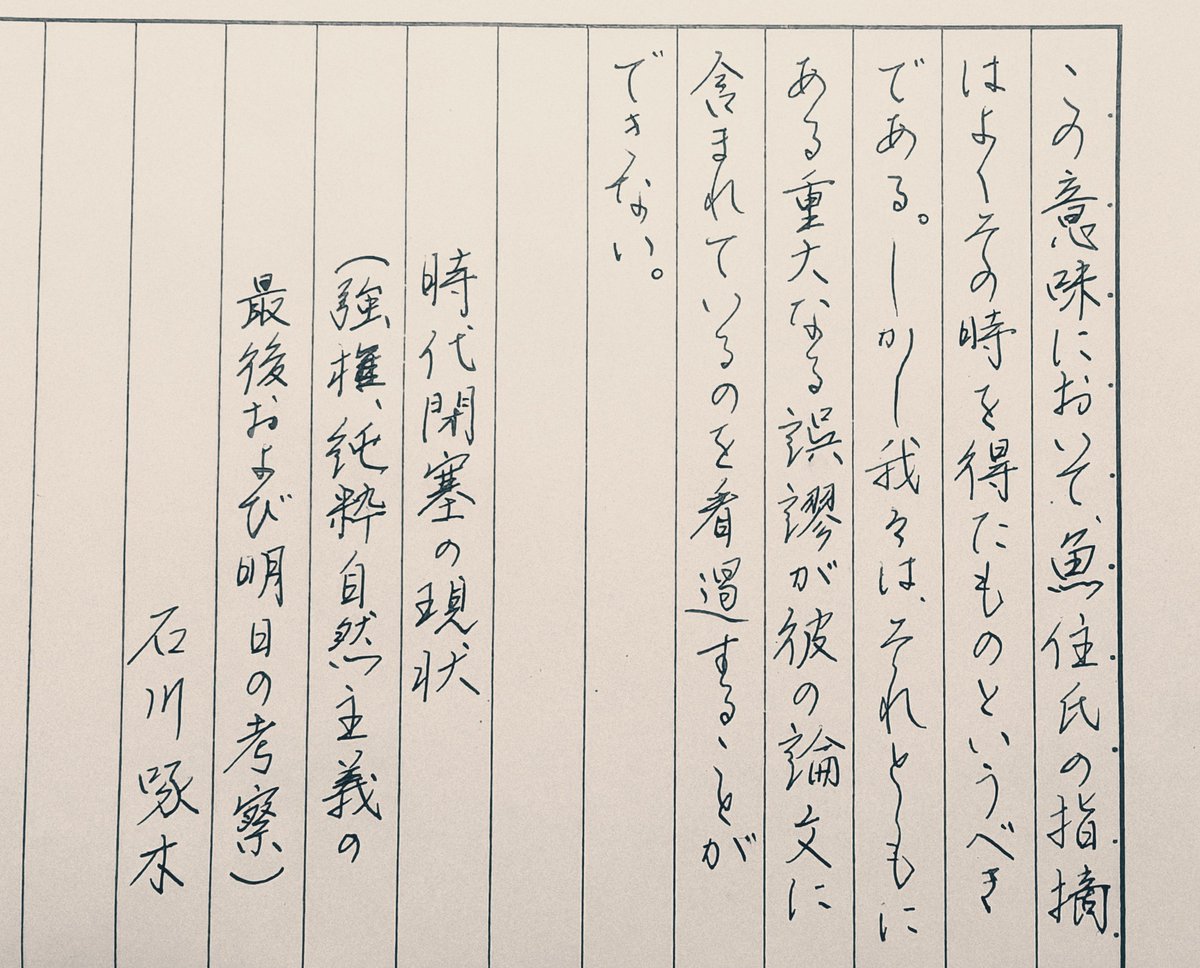 この意味において、魚住氏の指摘
はよくその時を得たものというべき
である。しかし我々は、それとともに
ある重大なる誤謬が彼の論文に
含まれているのを看過することが
できない。
時代閉塞の現状
(強権、純粋自然主義の
最後および明日の考察)
石川啄木